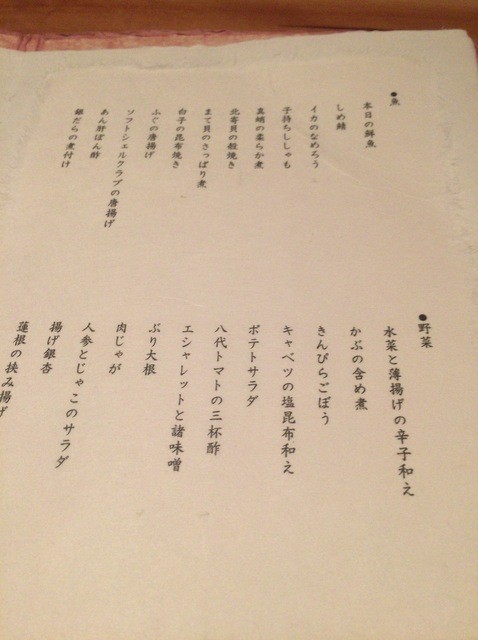 ●魚
本日の鮮魚
しめ鯖
イカのなめろう
子持ちししゃも
真蛸の柔らか煮
北寄貝の殻焼き
まて貝のさっぱり煮
白子の昆布焼き
ふぐの唐揚げ
ソフトシェルクラブの唐揚げ
あん肝ぽん酢
銀だらの煮付け
●野菜
水菜と薄揚げの辛子和え
かぶの含め煮
きんぴらごぼう
キャベツの塩昆布和え
ポテトサラダ
八代トマトの三杯酢
エシャレットと諸味噌
ぶり大根
肉じゃが
人参とじゃこのサラダ
揚げ銀杏
蓮根の挟み揚げ